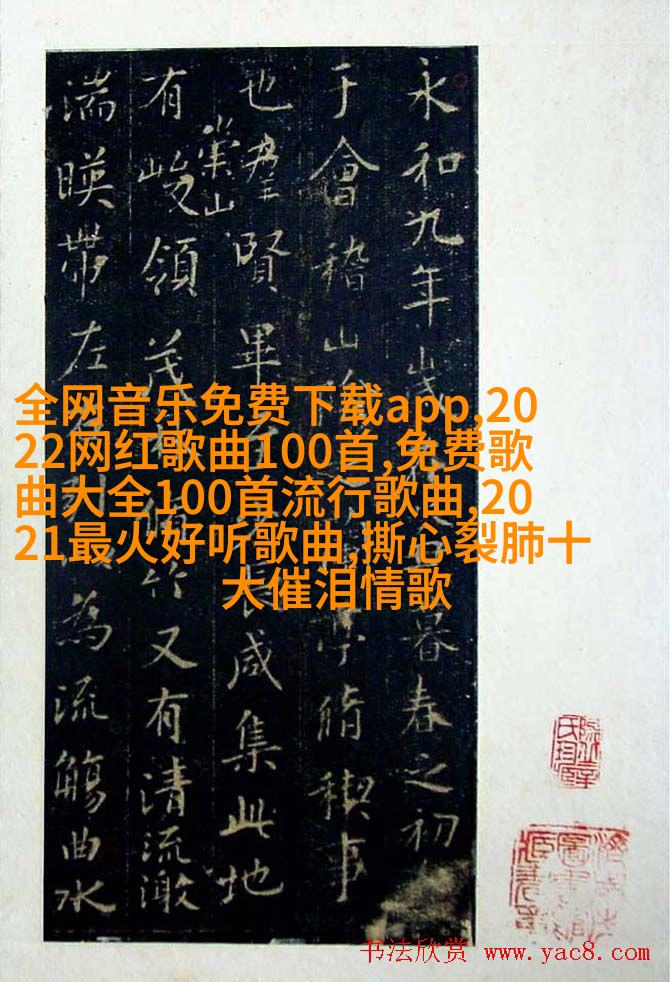 永和九年歲暮春之初
于會稽山亭脩稧事
也羣賢畢長咸集此地
有崇山峻領茂竹又有清流激
湍暎帶左為流觴曲水
全网音乐免费下载app,20
22网红歌曲100首,免费歌
曲大全100首流行歌曲,20
21最火好听歌曲,撕心裂肺十
大催泪情歌
书法欣赏 www.yac8.com